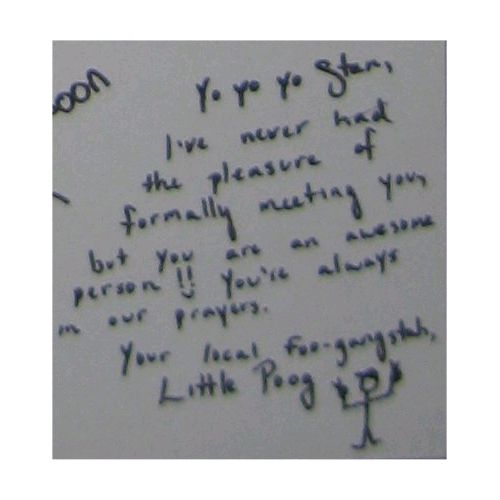 oon
Yo Yo Yo Stan,
I've never had
the pleasure of
formally meeting you,
but you are an awesome
person!! You're always
in our prayers.
Your local Foo-gangstah,
Little Poog